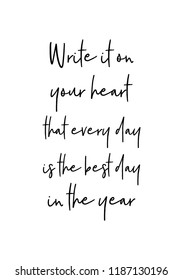 Write it on
your heart
that every day
is the best day
in the year
www.shutterstock.com · 1187130196